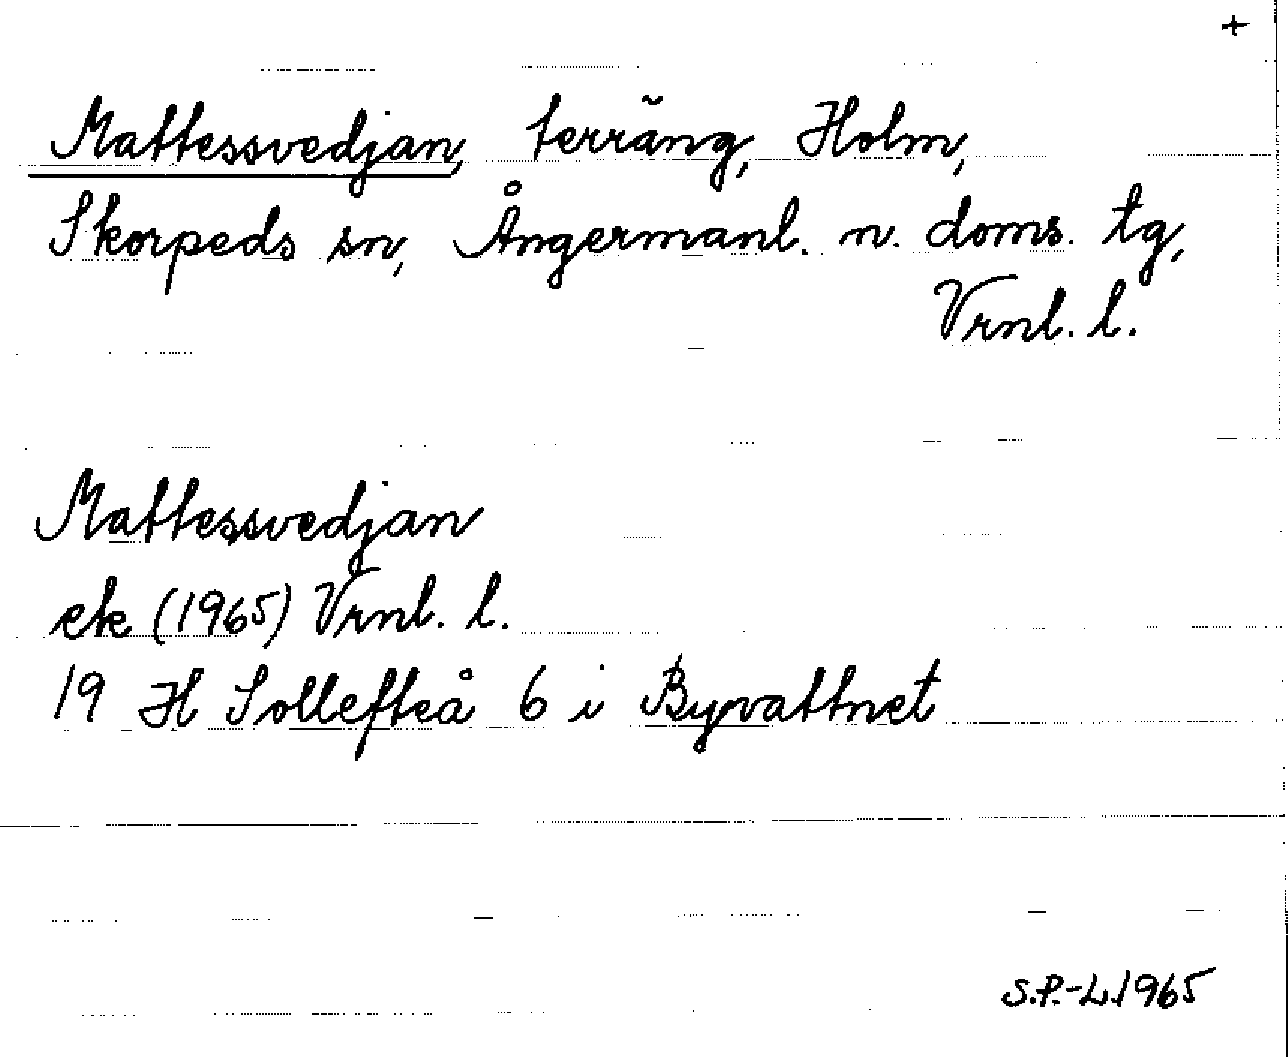 +
Mattessvedjan, terräng, Holm,
Skorpeds sn, Ångermanl. n. doms. tg,
Vrnl. l.
Mattessvedjan
ek (1965) Vrnl. l.
19 H Sollefteå 6 i Byvattnet
S.P.-L.1965